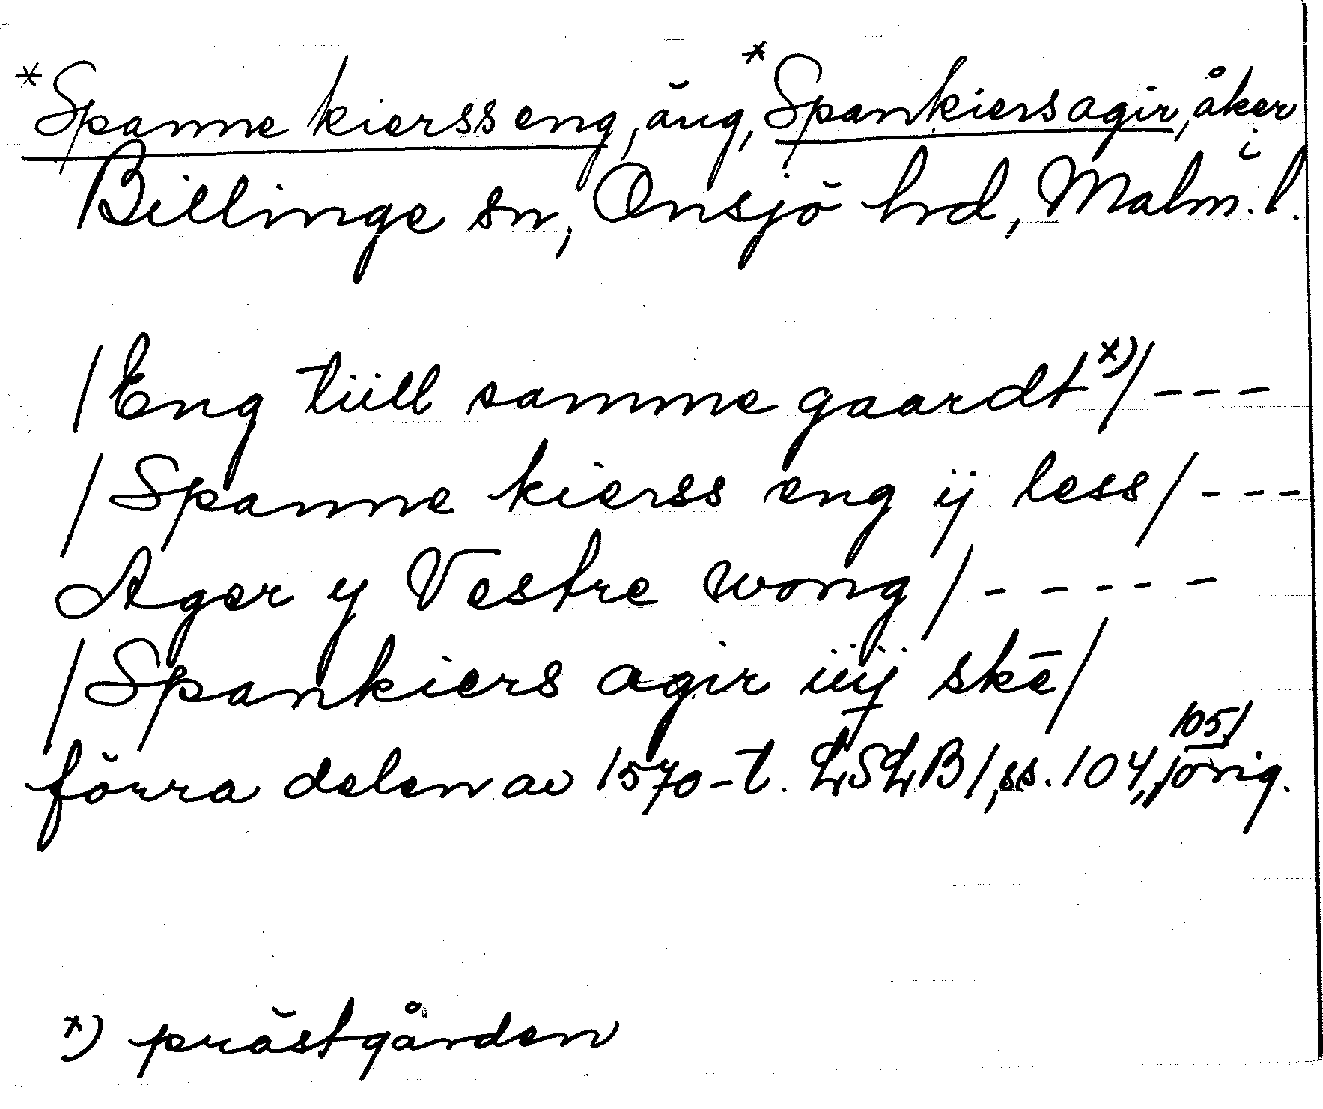 *Spanne kierss eng, äng, *Spankiers agir, åker i
Billinge sn, Onsjö hrd, Malm. l.
/Eng tiill samme gaardt x)/ ---
/Spanne kierss eng ij less/ ---
Ager y Vestre wong/ -----
/Spankiers agir iiij skē/
förra delen av 1570-t. LSLB 1, ss. 104, 105, orig.
x) prästgården